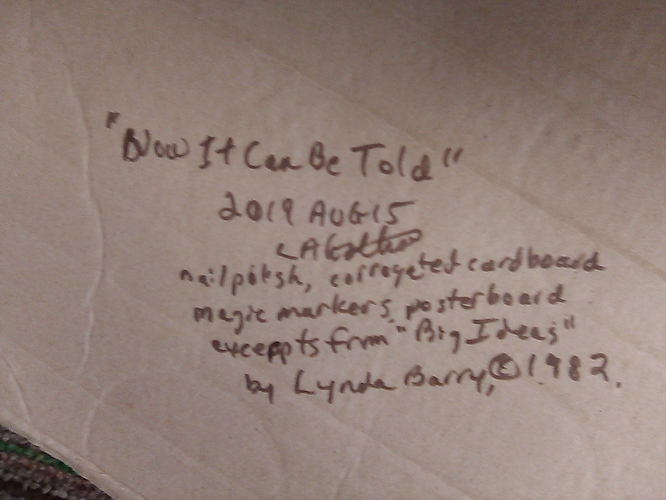 "Now It Can Be Told"
2019 AUG 15
nailpolish, corrogated cardboard
magic markers, posterboard
exceppts from "Big Ideas"
by Lynda Barry, © 1982.